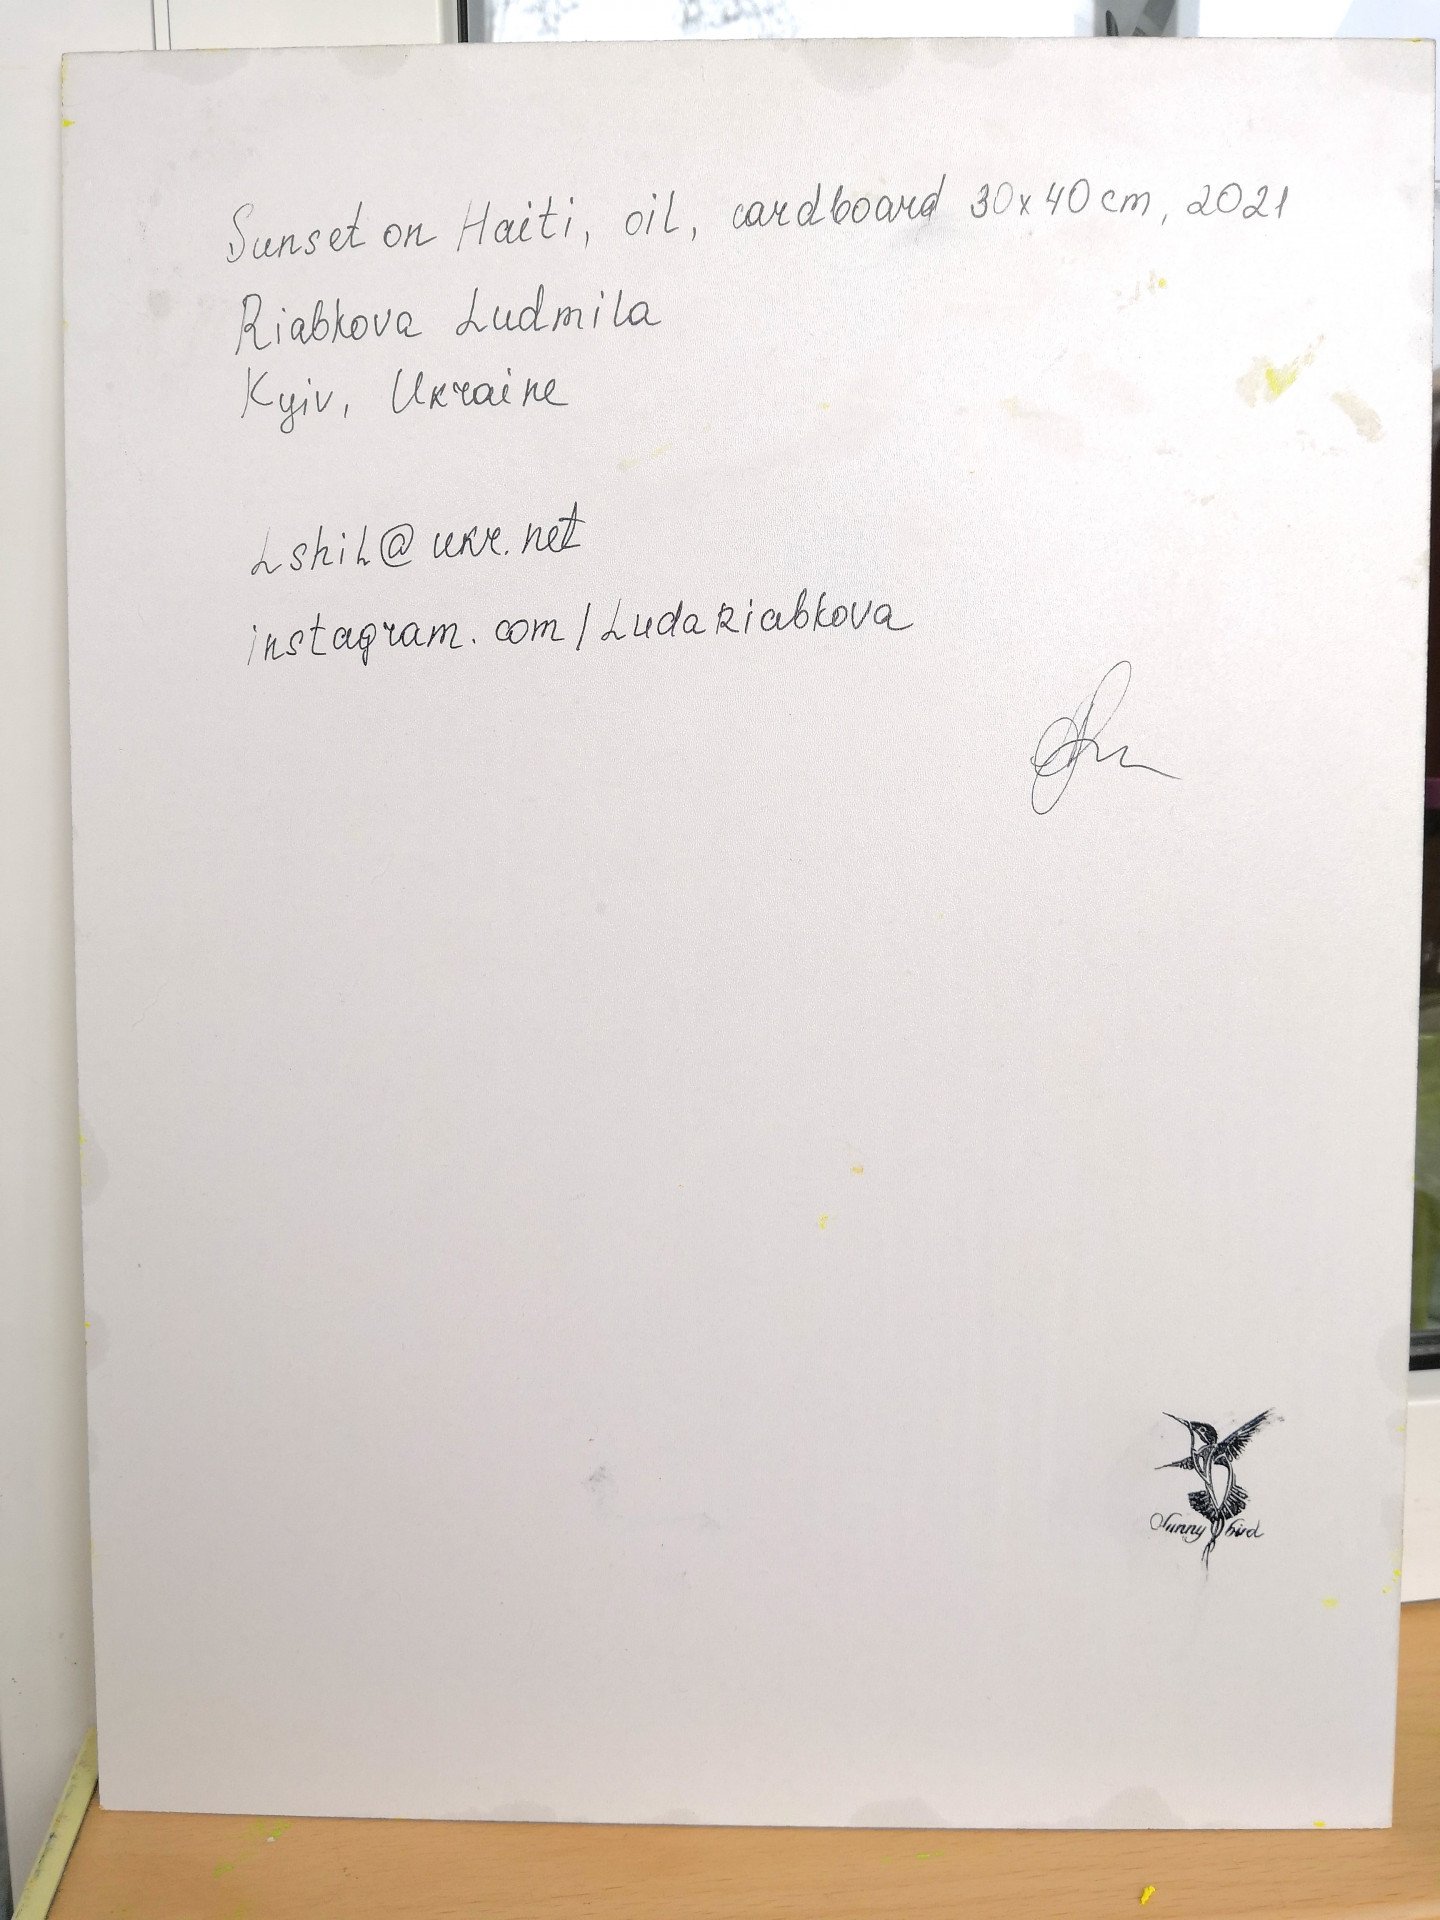 Sunset on Haiti, oil, cardboard 30x40cm, 2021
Riabkova Ludmila
Kyiv, Ukraine
Lshil@ukr.net
instagram.com/LudaRiabkova
Sunny bird